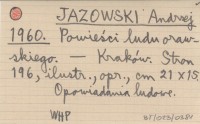 JAZOWSKI Andrzej
1960. Powieści ludu oraw-
skiego. — Kraków. Stron
196, ilustr., opr., cm 21 x 15
Opowiadania ludowe.
WHP